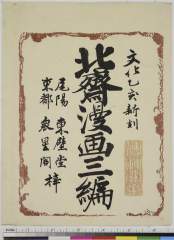 文化乙亥新刻
北齋漫画三編
尾陽 東壁堂
東都 衆星閣 梓